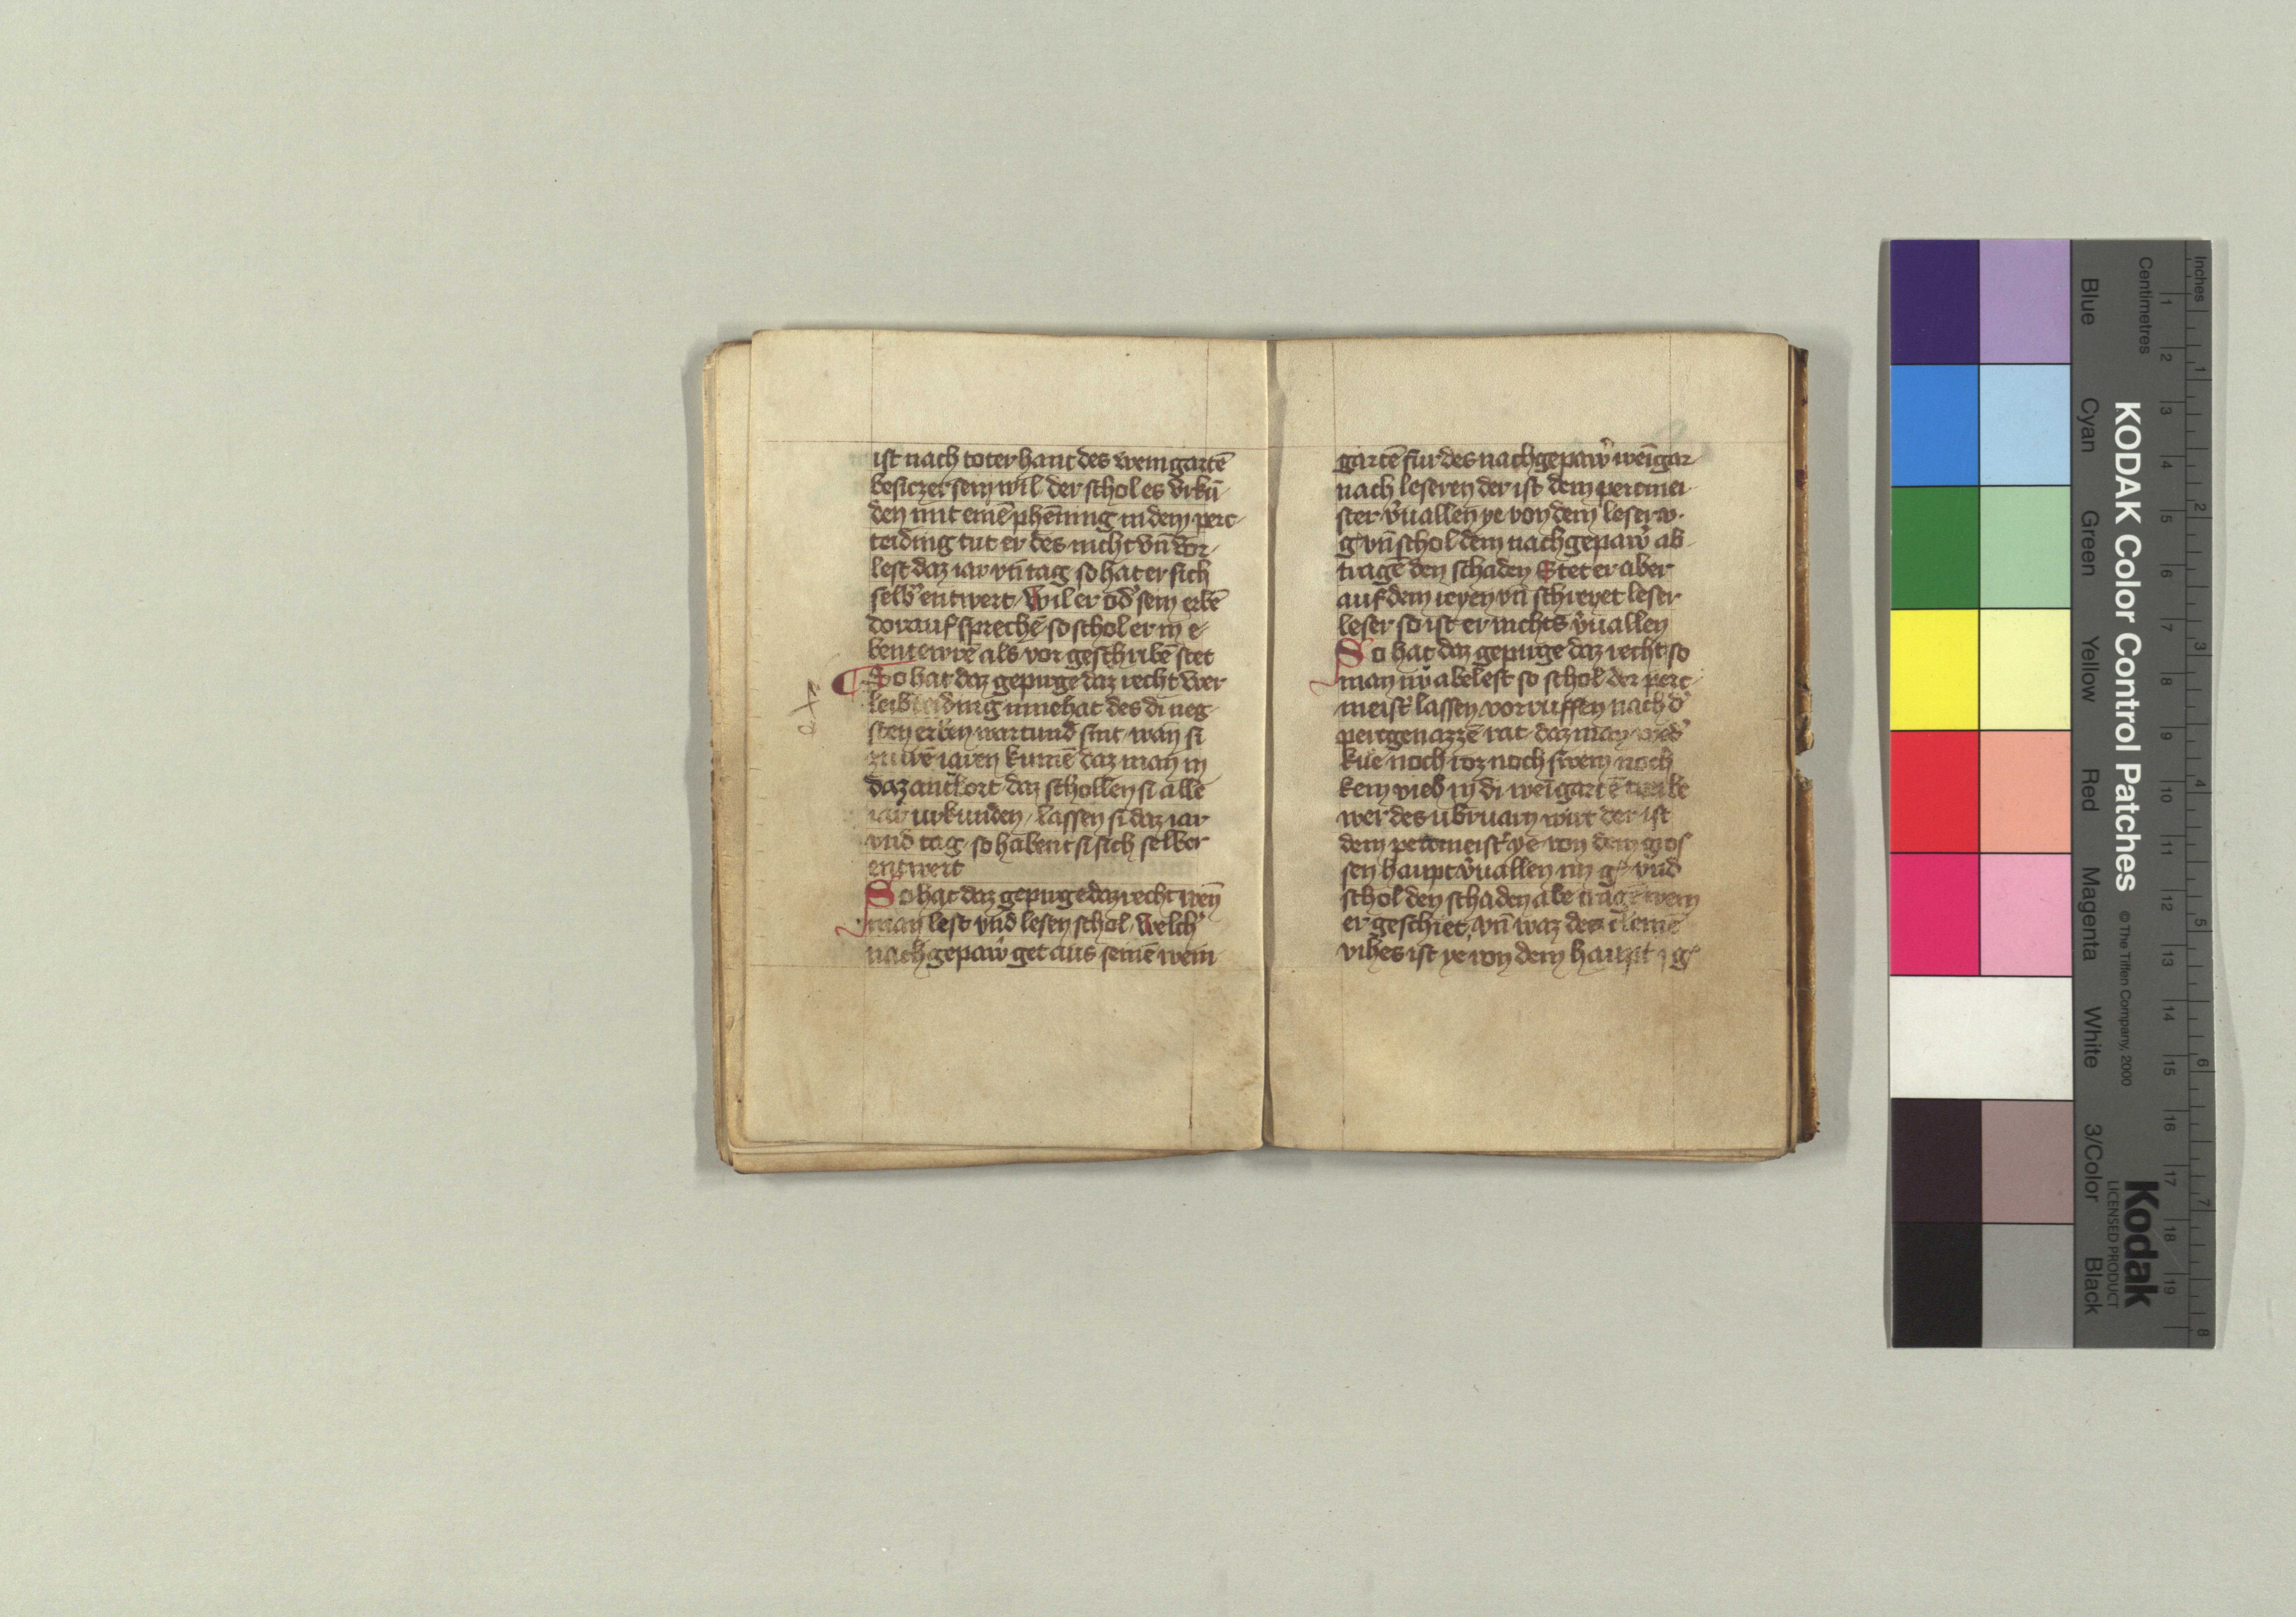 ist nach toter hant des weingartē
besiczer sein wil der schol es vrkū-
den mit einē phēning in dem perc-
teiding tut er des nicht vn̄ vor-
lest daz iar vn̄ tag so hat er sich
selb᾽ entwert / wil er od᾽ sein erbē
dorauf sprechē so schol er in e-
ben ewrē als vor geschribē stet
¶ So hat daz gepirge daz recht wer
leibteiding inne hat des di neg-
sten erben wartund sint, wan si
iaren kumē daz man in
daz antwort daz schollen si alle
iar urkunden / lassen si daz iar
vnd tag so habent si sich selber
entwert
So hat daz gepirge daz recht wen̄
man lest vnd lesen schol, welch᾽
nachgepaw᾽ get aus seinē wein-
gartē fur des nachgepaw᾽ wēigar-
nach leseren der ist dem percmei-
ster v᾽uallen ye von dem leser
g᾽ vn̄ schol dem nachgepaw᾽ ab-
tragē den schaden Stet er aber
auf dem reyen vn̄ schreyet leser
leser so ist er nichts v᾽uallen
So hat daz gepirge daz recht so
man nv̄ abelest so schol der perc-
meist᾽ lassen vorruffen nach d᾽
percgenozzē rat daz man wed᾽
kue noch roz noch swein noch
kein vieh in di weīgartē treibe
wer des ubruarn wirt der ist
dem percmeist᾽ ye von dem gros
sen haupt v᾽uallen g᾽ vnd
schol den schaden abe tragē wem
er geschiet, vn̄ waz des clemē
vihes ist ye von dem haupt 1 g᾽
KODAK Color Control Patches © The Tiffen Company, 2000
Kodak
LICENSED PRODUCT
Inches 1 2 3 4 5 6 7 8
Centimetres 1 2 3 4 5 6 7 8 9 10 11 12 13 14 15 16 17 18 19
Blue Cyan Green Yellow Red Magenta White 3/Color Black